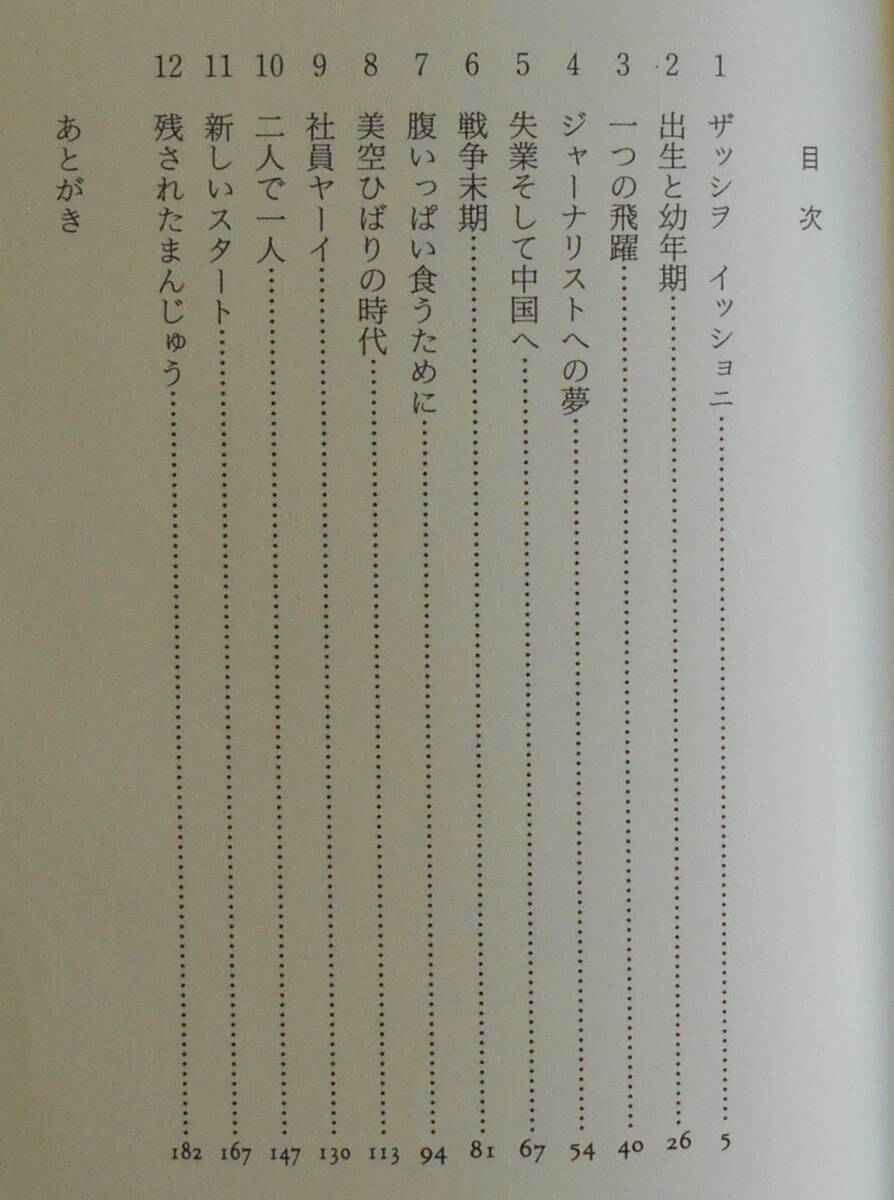 目次
1 ザッシヲ イッショニ……5
2 出生と幼年期……26
3 一つの飛躍……40
4 ジャーナリストへの夢……54
5 失業そして中国へ……67
6 戦争末期……81
7 腹いっぱい食うために……94
8 美空ひばりの時代……113
9 社員ヤーイ……130
10 二人で一人……147
11 新しいスタート……167
12 残されたまんじゅう……182
あとがき